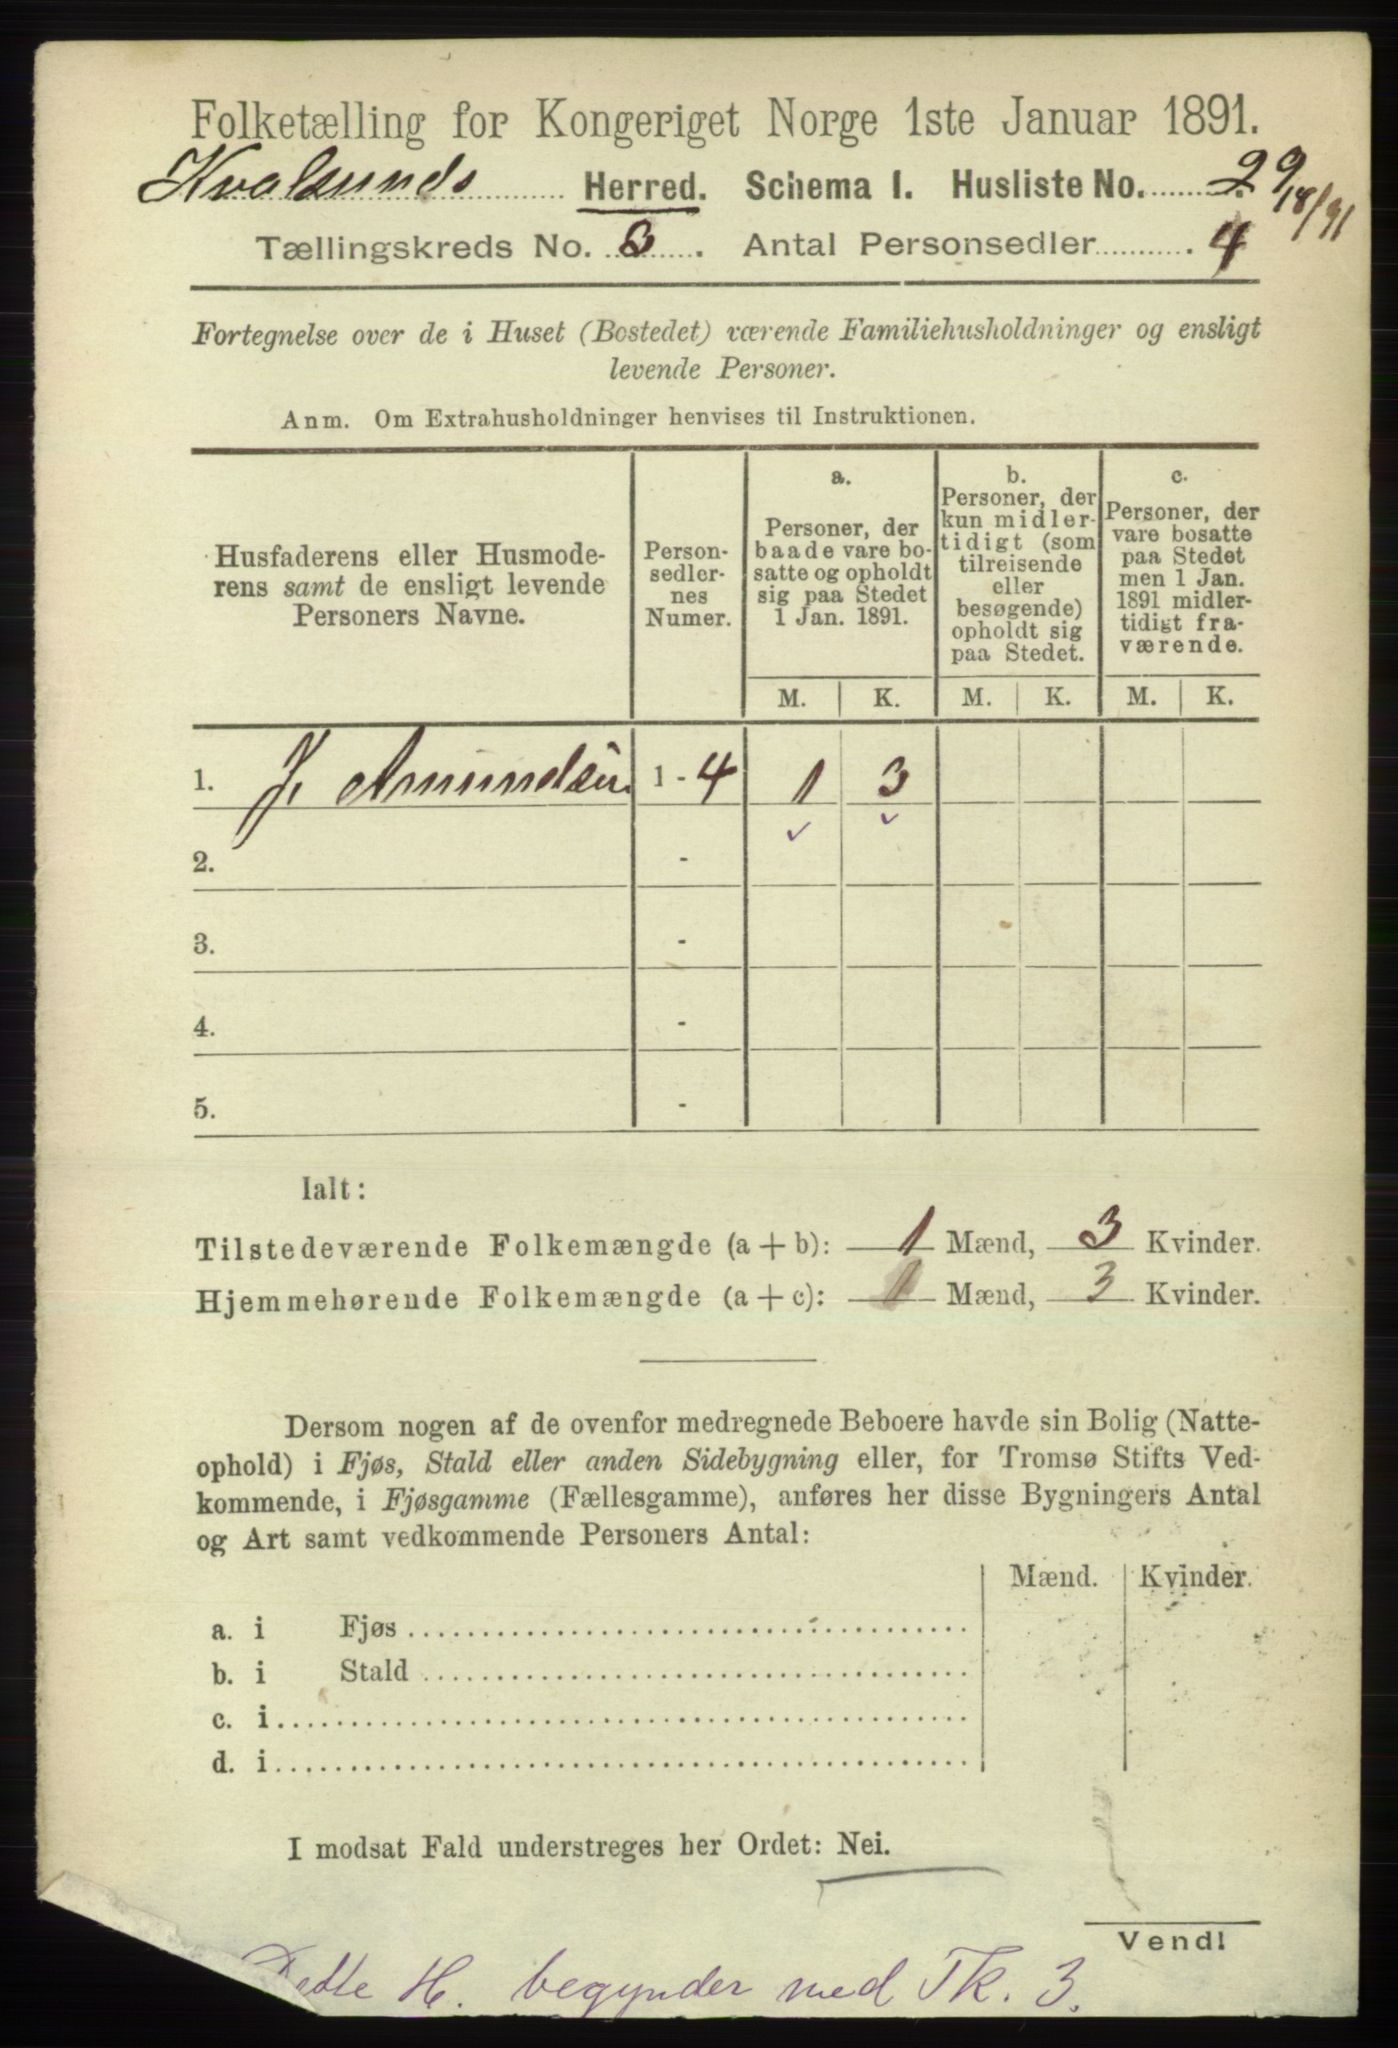 Folketælling for Kongeriget Norge 1ste Januar 1891.
Kvalsunds Herred. Schema I. Husliste No. 29
18/91
Tællingskreds No. 3. Antal Personsedler 4
Fortegnelse over de i Huset (Bostedet) værende Familiehusholdninger og ensligt
levende Personer.
Anm. Om Extrahusholdninger henvises til Instruktionen.
Husfaderens eller Husmode-
rens samt de ensligt levende
Personers Navne.
Person-
sedler-
nes
Numer.
a.
Personer, der
baade vare bo-
satte og opholdt
sig paa Stedet
1 Jan. 1891.
b.
Personer, der
kun midler-
tidigt (som
tilreisende
eller
besøgende)
opholdt sig
paa Stedet.
c.
Personer, der
vare bosatte
paa Stedet
men 1 Jan.
1891 midler-
tidigt fra-
værende.
M. K. M. K. M. K.
1. J. Amundsen 1 - 4 1 3
2. -
3. -
4. -
5. -
Ialt:
Tilstedeværende Folkemængde (a + b): 1 Mænd, 3 Kvinder.
Hjemmehørende Folkemængde (a + c): 1 Mænd, 3 Kvinder.
Dersom nogen af de ovenfor medregnede Beboere havde sin Bolig (Natte-
ophold) i Fjøs, Stald eller anden Sidebygning eller, for Tromsø Stifts Ved-
kommende, i Fjøsgamme (Fællesgamme), anføres her disse Bygningers Antal
og Art samt vedkommende Personers Antal:
Mænd. Kvinder.
a. i Fjøs
b. i Stald
c. i
d. i
I modsat Fald understreges her Ordet: Nei.
Vend!
Dette H. begynder med Tk. 3.